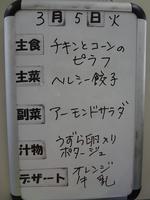 3月5日火
主食 チキンとコーンの
ピラフ
主菜 ヘルシー餃子
副菜 アーモンドサラダ
汁物 うずら卵入り
ポタージュ
デザート オレンジ
牛乳